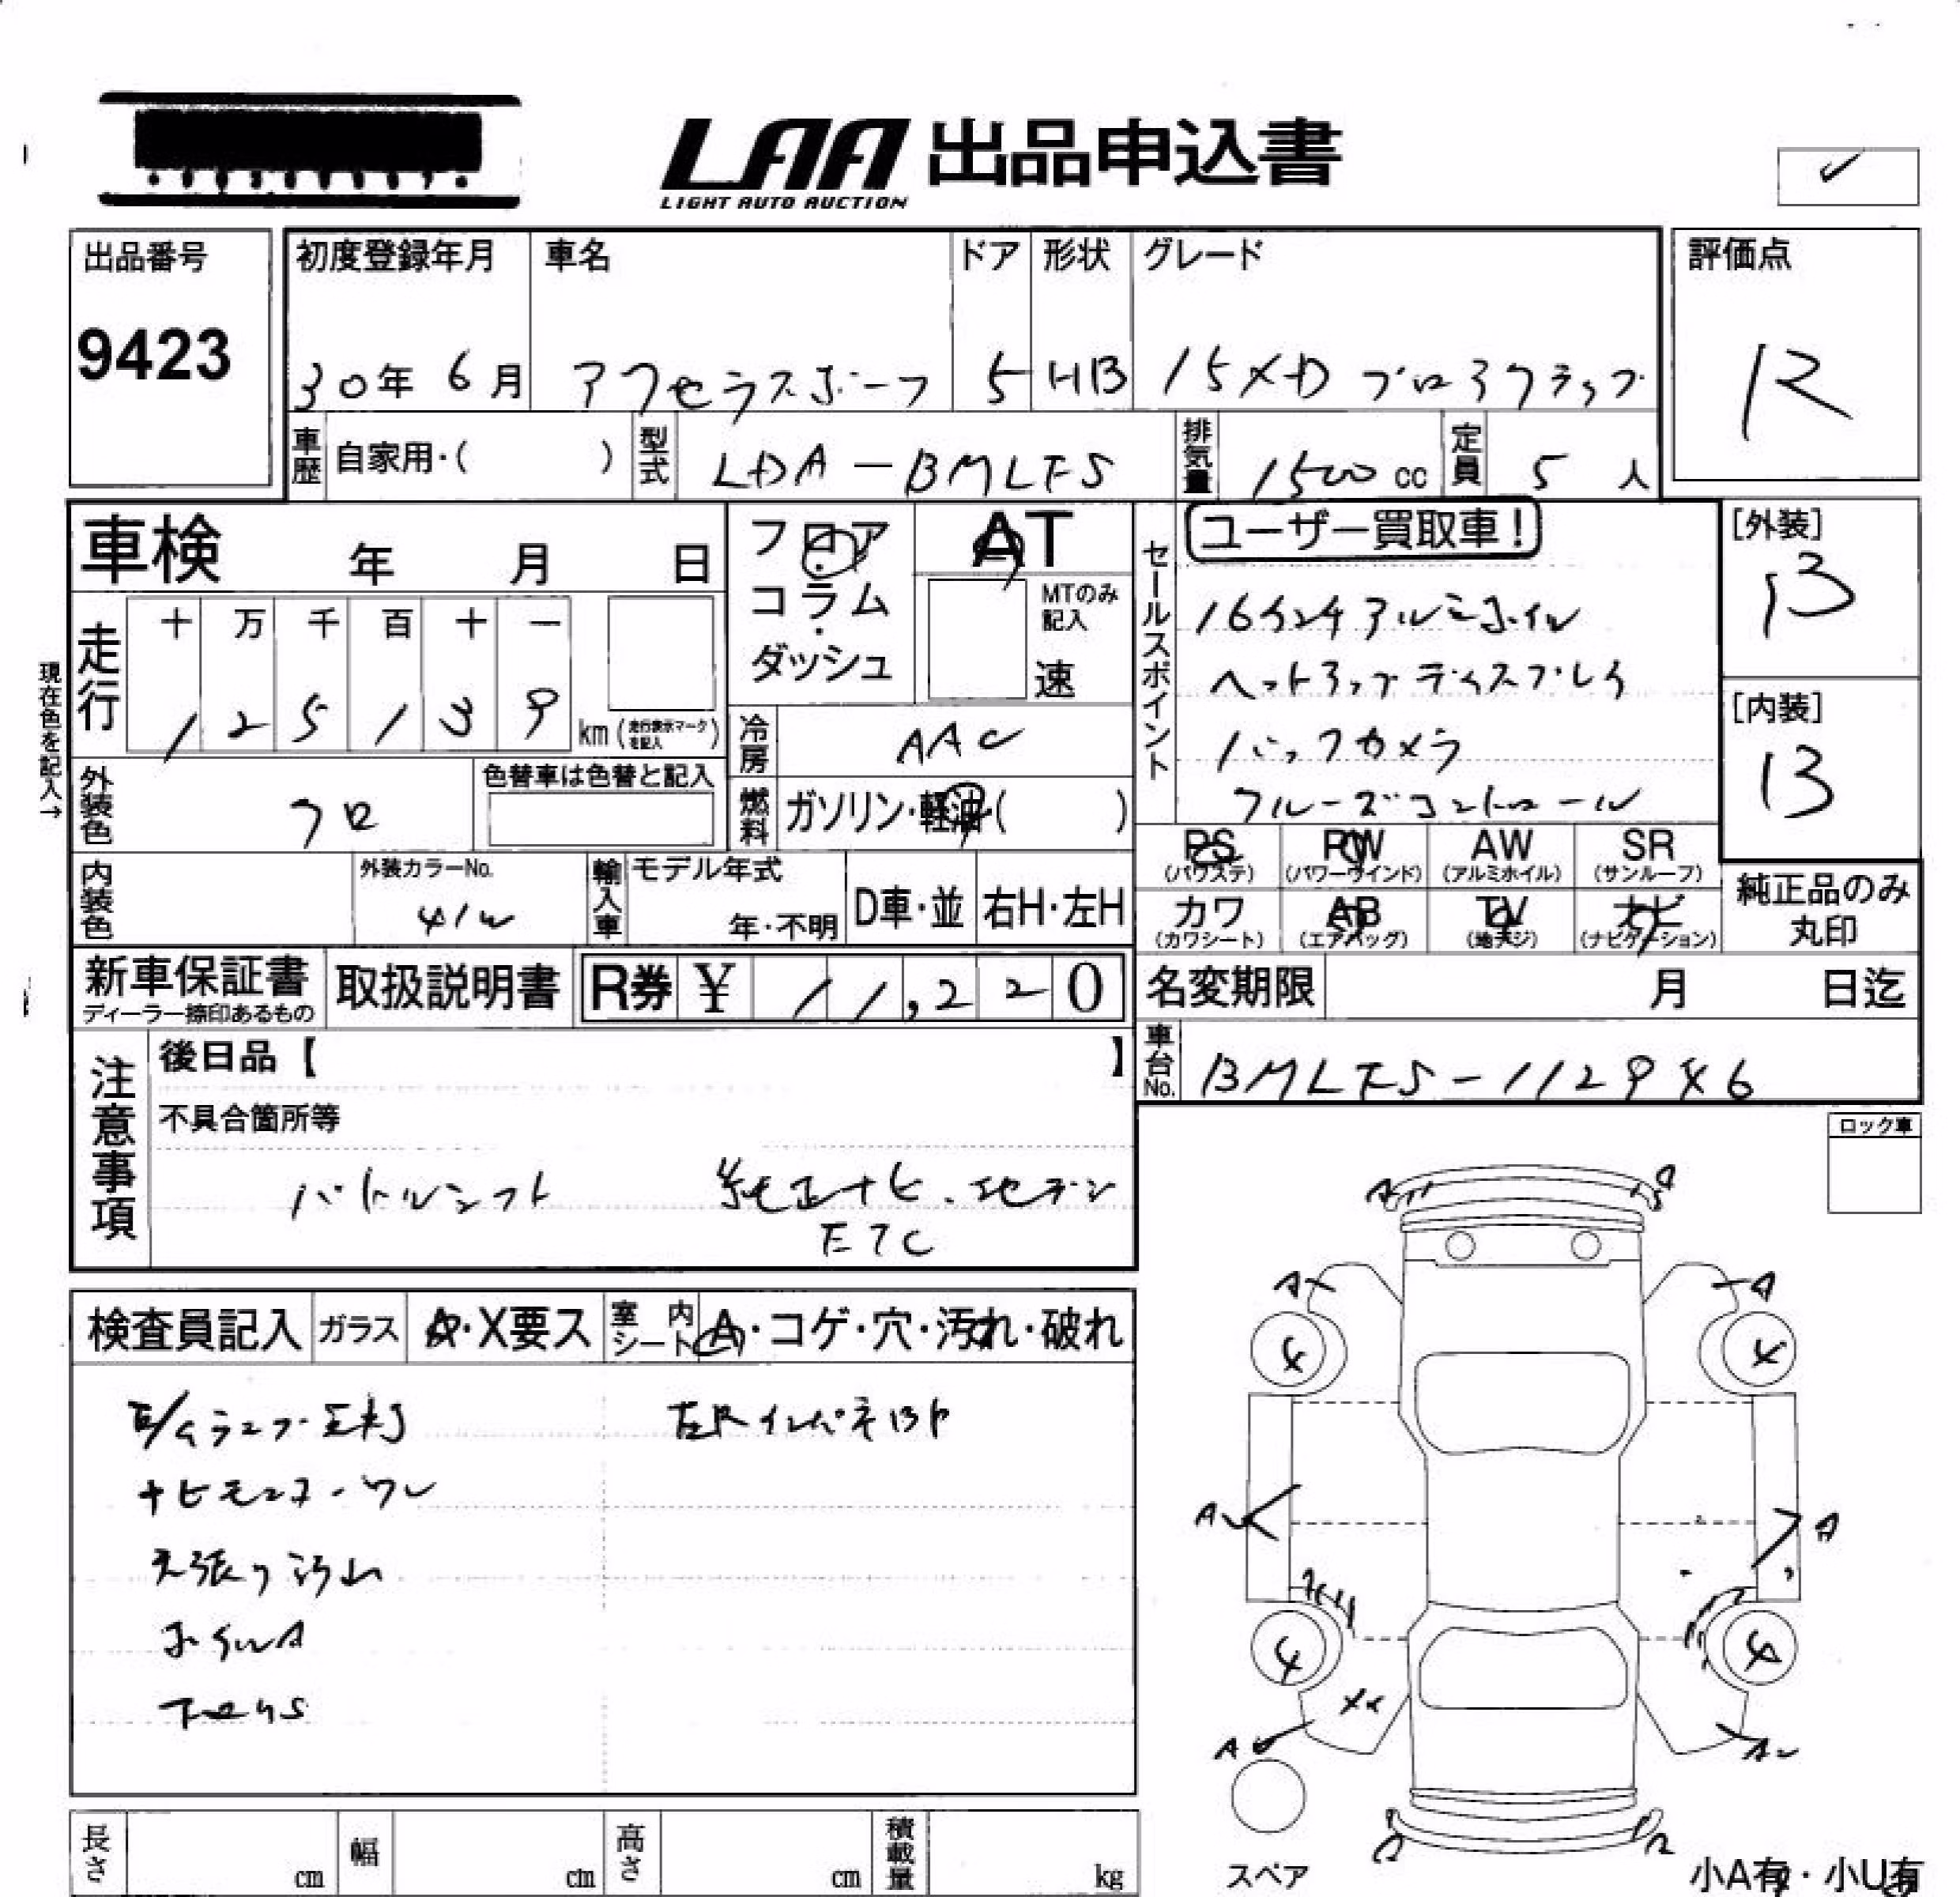 LAA 出品申込書
LIGHT AUTO AUCTION
出品番号 初度登録年月 車名 ドア 形状 グレード 評価点
9423 30年 6月 アクセラスポーツ 5 HB 15XD プロアクティブ R
車歴 自家用・( ) 型式 LDA-BMLFS 排気量 1500 cc 定員 5 人
車検 年 月 日
フロア・コラム・ダッシュ
AT
MTのみ記入
速
セールスポイント
ユーザー買取車!
16インチアルミホイル
ヘットアップディスプレイ
バックカメラ
クルーズコントロール
[外装]
B
[内装]
B
走行 十 万 千 百 十 一
1 2 5 1 3 9 km (走行表示マークを記入)
現在色を記入→
冷房 AAC
外装色 クロ 色替車は色替と記入
燃料 ガソリン・軽油( )
内装色 外装カラーNo. 41W
輸入車 モデル年式 年・不明 D車・並 右H・左H
PS (パワステ) PW (パワーウインド) AW (アルミホイル) SR (サンルーフ)
カワ (カワシート) AB (エアバッグ) TV (地デジ) ナビ (ナビゲーション)
純正品のみ丸印
新車保証書 ディーラー捺印あるもの 取扱説明書 R券 ¥ 11,220
名変期限 月 日迄
車台No. BMLFS-112946
注意事項
後日品【 】
不具合箇所等
パドルシフト 純正ナビ、地デジ
ETC
ロック車
検査員記入 ガラス A・X要ス 室内シート A・コゲ・穴・汚れ・破れ
E/Gランプ点灯 左Rインパネ凹
ナビモニターワレ
天張り汚れ
ホイルA
下回りS
A A
A A
4 4
A A
4 4
XX
A A
スペア
小A有・小U有
長さ cm 幅 cm 高さ cm 積載量 kg